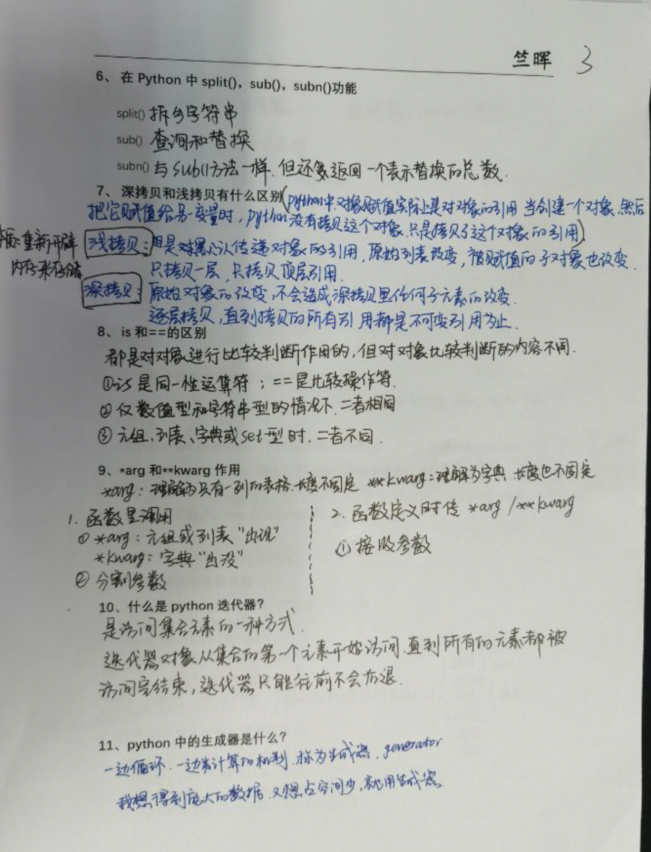 竺晖 3
6、在 Python 中 split(), sub(), subn()功能
split() 拆分字符串
sub() 查询和替换
subn() 与sub()方法一样.但还多返回一个表示替换的总数.
7、深拷贝和浅拷贝有什么区别(python中对象赋值实际上是对对象的引用 当创建一个对象.然后
把它赋值给另一变量时,python没有拷贝这个对象.只是拷贝了这个对象的引用)
重新开辟
内存来存储
浅拷贝: 对默认传递对象的引用,原始列表改变,被赋值的子对象也改变.
只拷贝一层,只拷贝顶层引用.
深拷贝: 原始对象的改变.不会造成深拷贝里任何子元素的改变.
逐层拷贝,直到拷贝的所有引用都是不可变引用为止.
8、is 和==的区别
都是对对象进行比较判断作用的,但对对象比较判断的内容不同.
①is是同一性运算符;==是比较操作符.
②仅数值型和字符串型的情况下.二者相同
③元组.列表、字典或set型时.二者不同.
9、*arg 和**kwarg 作用
*arg:理解为只有一列的表格.长度不固定 **kwarg:理解为字典 长度也不固定
1.函数里调用
①*arg:元组或列表"出现"
*kwarg:字典"出没"
②分割参数
2.函数定义时传*arg/**kwarg
①接收参数
10、什么是 python 迭代器?
是访问集合元素的一种方式.
迭代器对象从集合的第一个元素开始访问.直到所有的元素都被
访问完结束,迭代器只能往前不会后退.
11、python 中的生成器是什么?
一边循环.一边计算的机制.称为生成器.generator
我想得到庞大的数据.又想占空间少,就用生成器